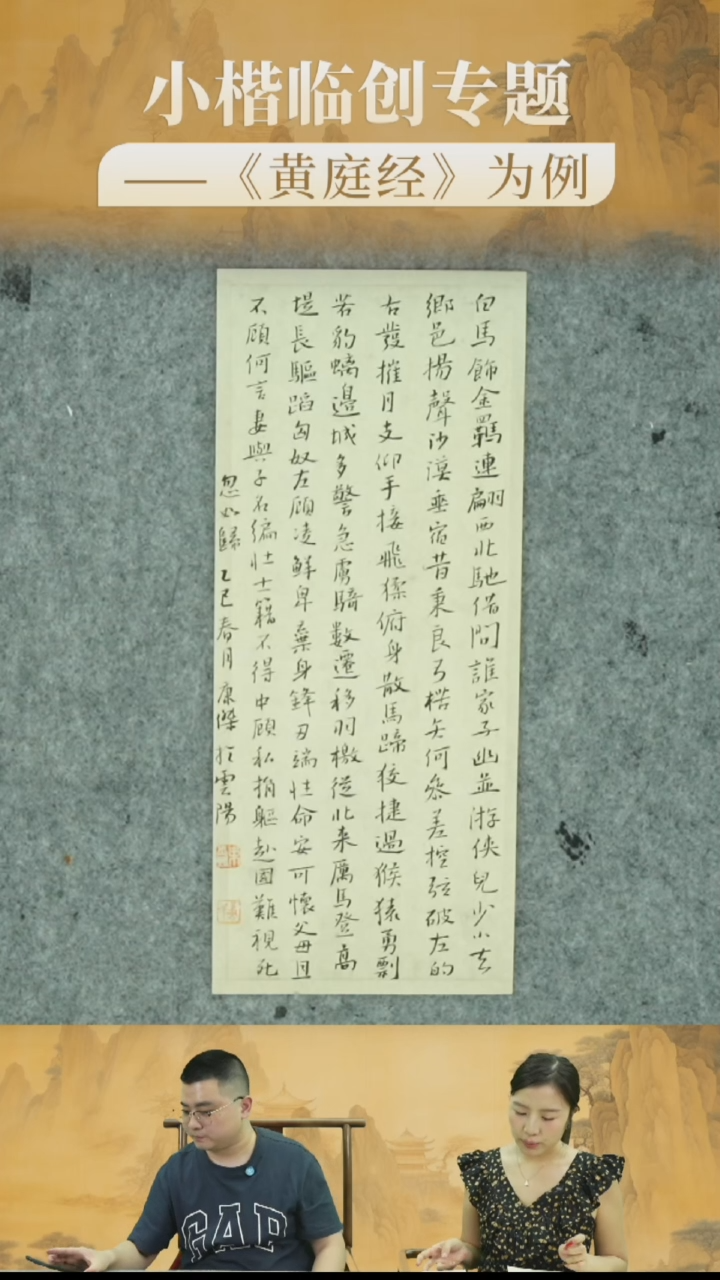 小楷临创专题
——《黄庭经》为例
白馬飾金羈連翩西北馳借問誰家子幽並游俠兒少小去
鄉邑揚聲沙漠垂宿昔秉良弓楛矢何參差控弦破左的
右發摧月支仰手接飛猱俯身散馬蹄狡捷過猴猿勇剽
若豹螭邊城多警急虜騎數遷移羽檄從北来厲馬登高
堤長驅蹈匈奴左顧凌鮮卑棄身鋒刃端性命安可懷父母且
不顧何言妻與子名編壯士籍不得中顧私捐軀赴國難視死
忽如歸 乙巳春月康傑於雲陽
GAP